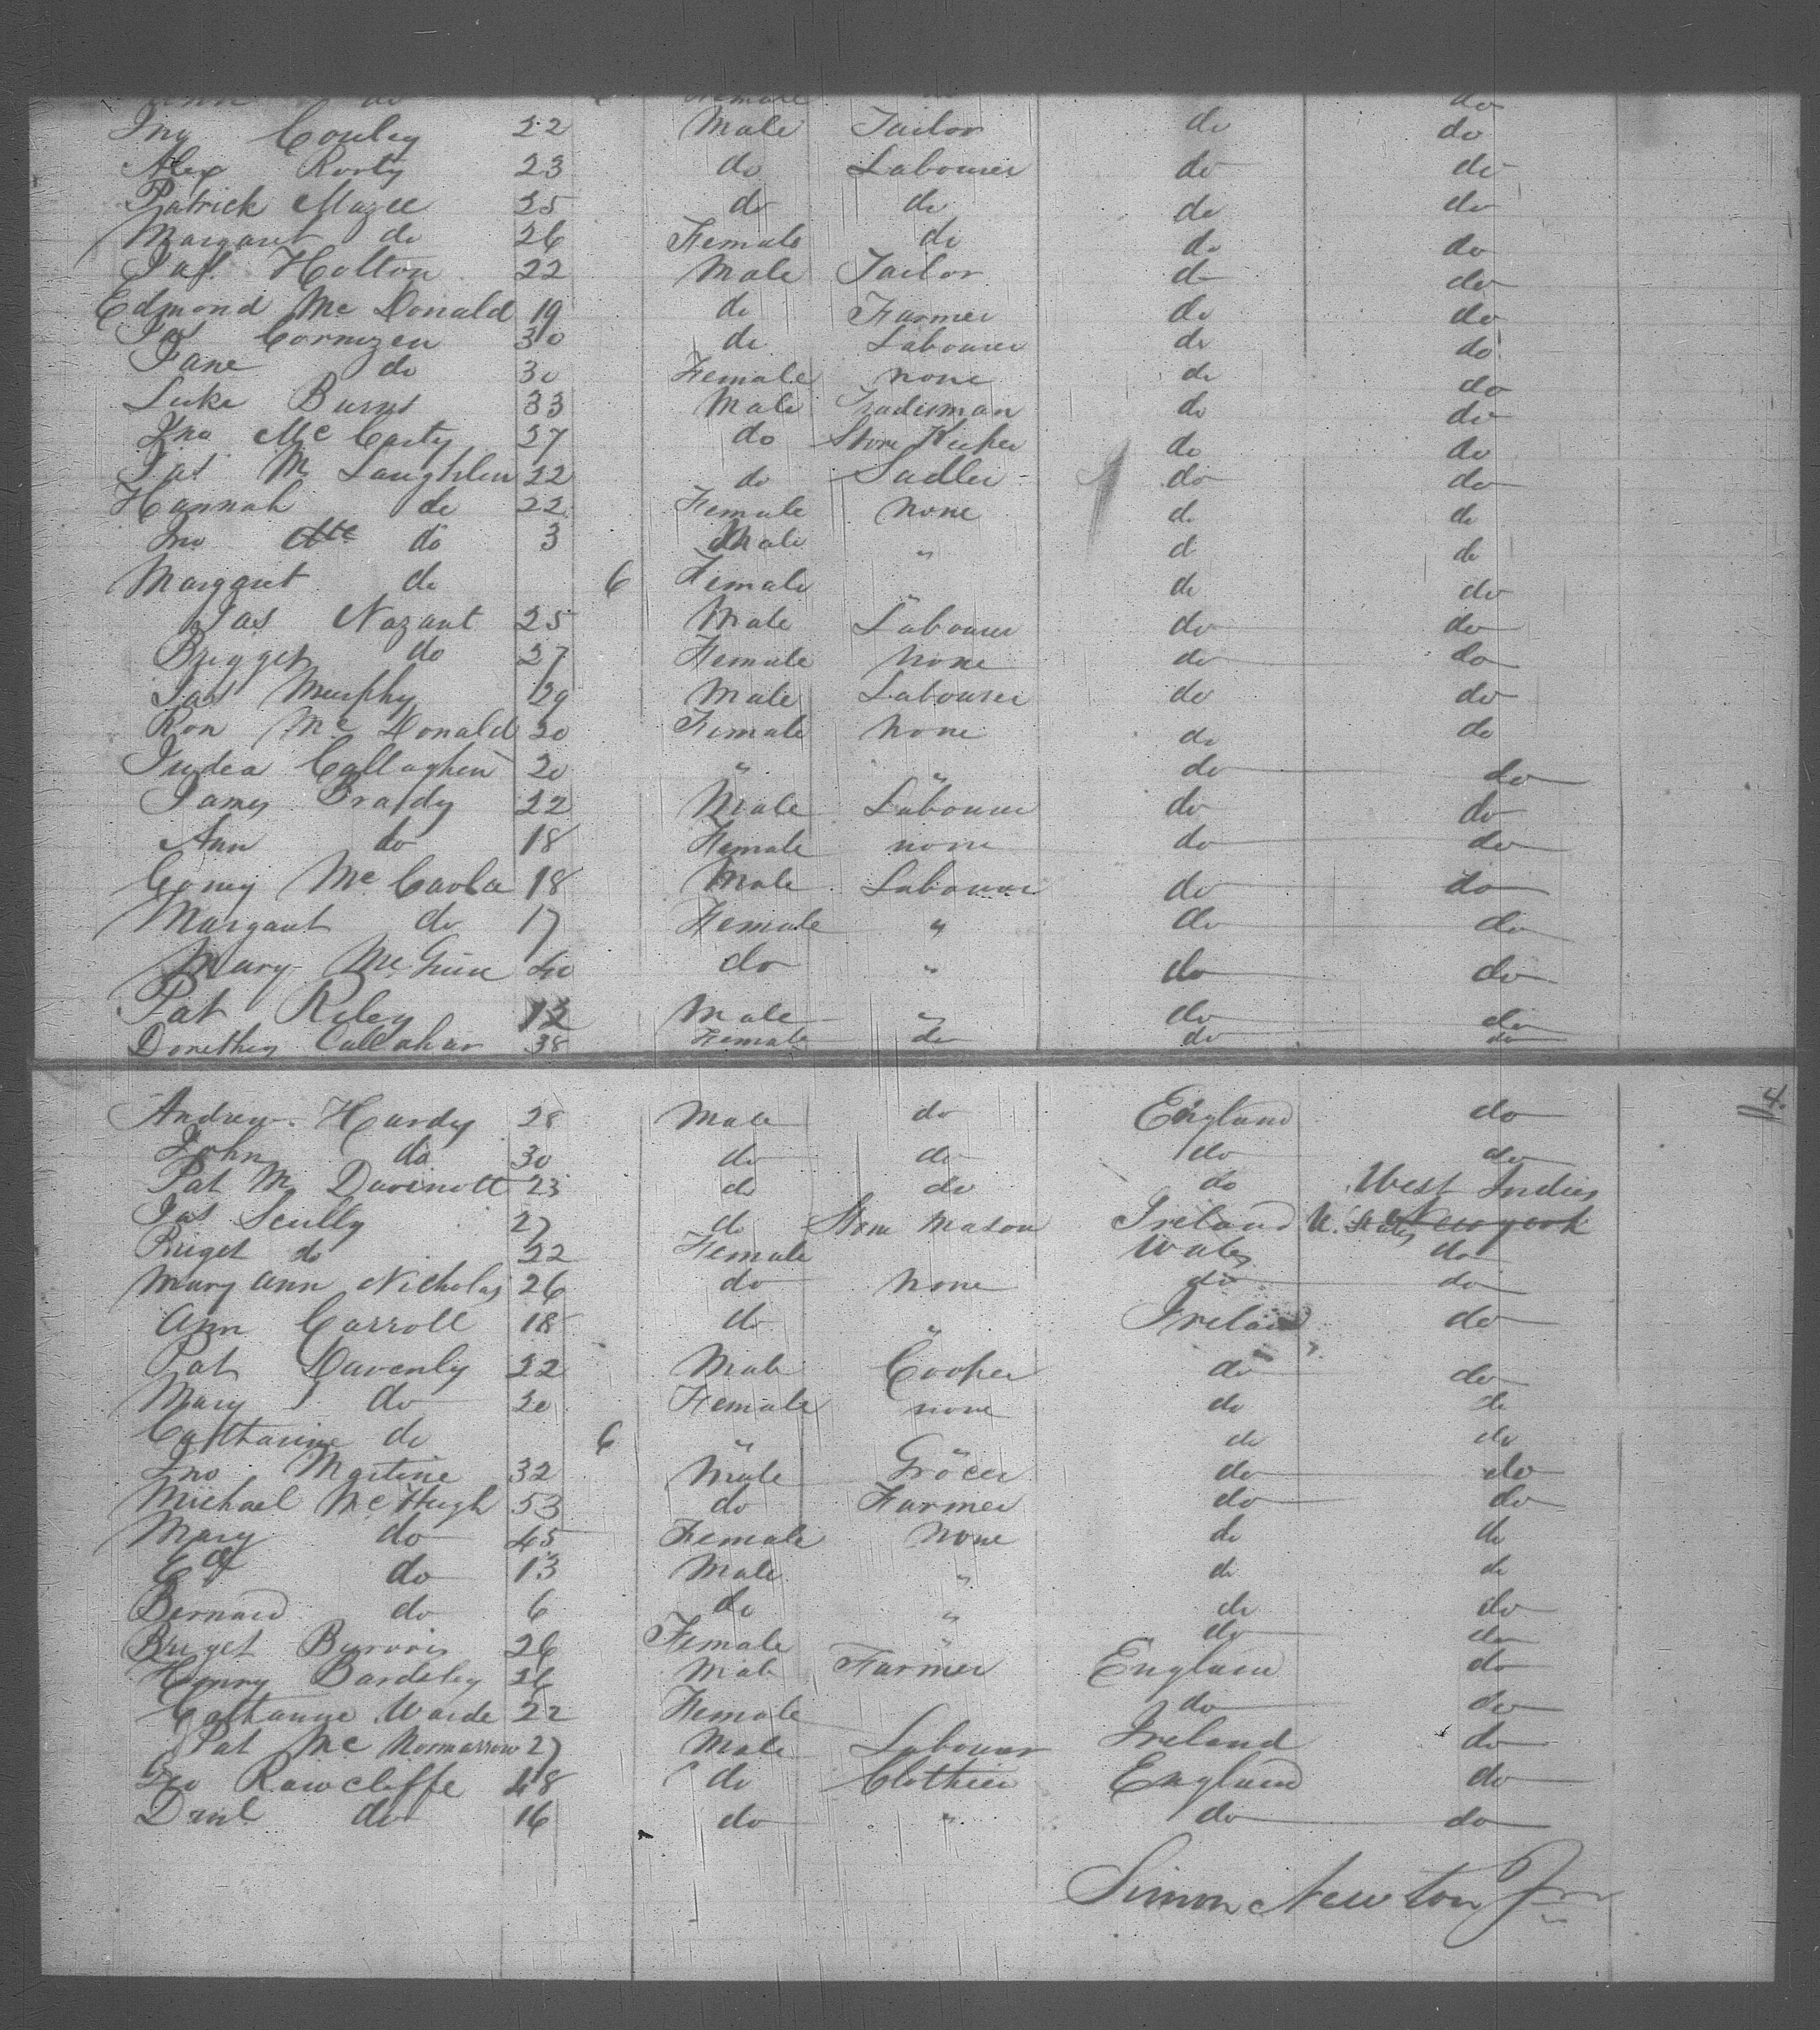 Ann do Female do
Jno Couley 22 Male Tailor do do
Alex Rorty 23 do Labourer do do
Patrick Magee 25 do do do do
Margaret do 26 Female do do do
Jas. Holton 22 Male Tailor do do
Edmond Mc Donald 19 do Farmer do do
Jas Cornizen 30 do Labourer do do
Jane do 30 Female none do do
Luke Burns 33 Male Tradisman do do
Jno Mc Carty 27 do Store Keeper do do
Jas Mc Laughlin 22 do Sadler do do
Hannah do 22 Female None do do
Jno do 3 Male " do do
Margaret do 6 Female do do
Jas Nazant 25 Male " Labourer do do
Brigget do 27 Female None do do
Jas Murphy 29 Male Labourer do do
Ron Mc Donald 20 Female None do do
Judea Callaghen 20 " " do do
James Brady 22 Male Labourer do do
Ann do 18 Female none do do
Corney Mc Carola 18 Male Labourer do do
Margaret do 17 Female " do do
Mary Mc Guire 40 do " do do
Pat Riley 12 Male " do do
Dorethey Callahan 38 Female do do do
Andrew Hardy 28 Male do England do 4.
John do 30 do do do do
Pat Mc Davinott 23 do do do West Indies
Jas Scully 27 do Stone Mason Ireland U. States New york
Briget do 22 Female Wales do
Mary Ann Nicholas 26 do None do do
Ann Carroll 18 do " Ireland do
Pat Davenly 22 Male Cooper do do
Mary do 20 Female none do do
Catharine do 6 " " do do
Jno Martine 32 Male Grocer do do
Michael Mc Hugh 53 do Farmer do do
Mary do 45 Female None do do
Ed do 13 Male " do do
Bernard do 6 do " do do
Briget 26 Female " do do
Henry Bardsley 26 Male Farmer England do
Catharine Warde 22 Female do do
Pat Mc Normarrow 27 Male Labourer Ireland do
Geo Rawcliffe 48 do Clothier England do
Danl do 16 do " do do
Simon Newton Jr